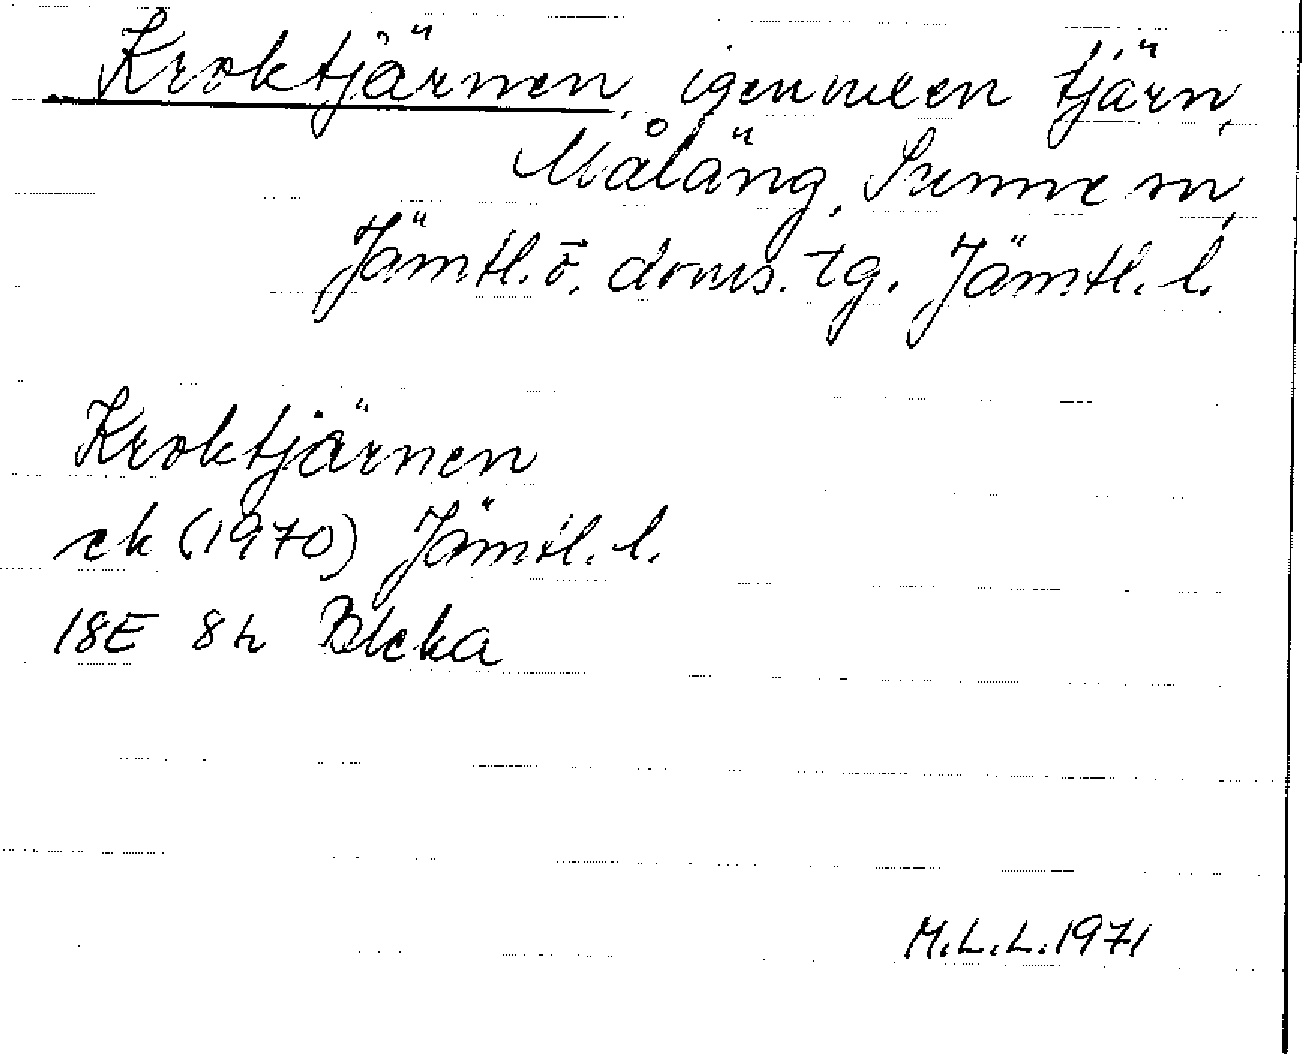 Kroktjärnen, igenvuxen tjärn,
Måläng, Sunne sn,
Jämtl. ö. doms. tg. Jämtl. l.
Kroktjärnen
ek (1970) Jämtl. l.
18E 8h Bleka
M.L.L. 1971